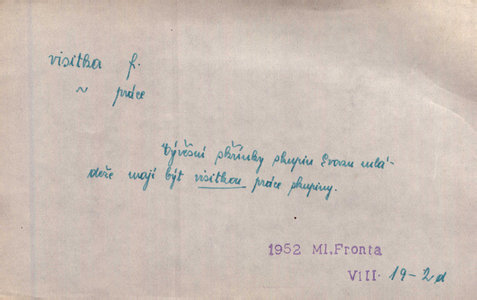 visitka f.
~ práce
Vývěsní skřínky skupin Svazu mlá-
deže mají být visitkou práce skupiny.
1952 Ml. Fronta
VIII. 19-2d